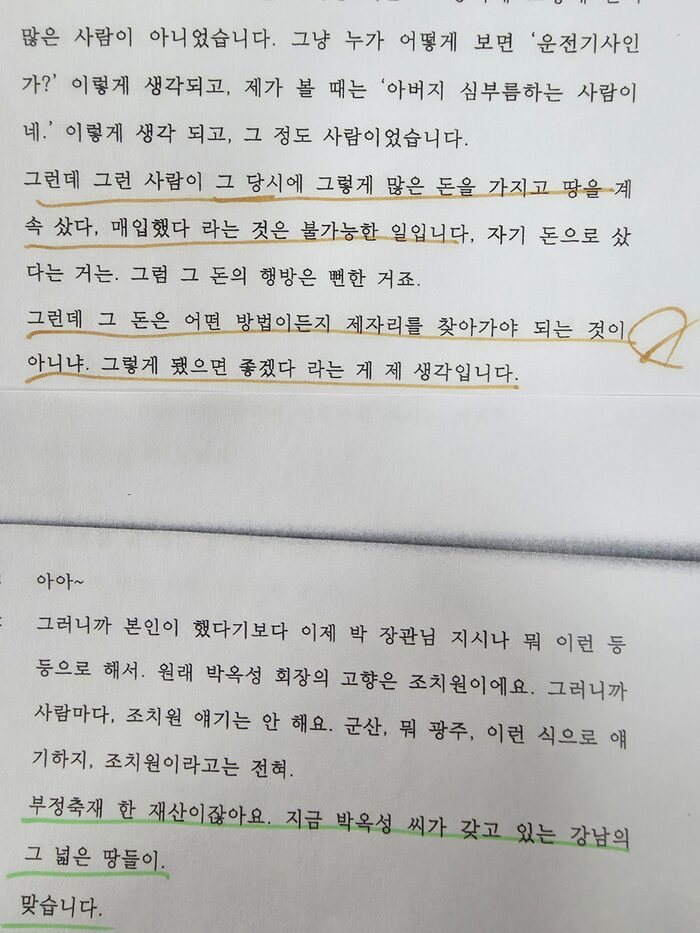 많은 사람이 아니었습니다. 그냥 누가 어떻게 보면 ‘운전기사인
가?’ 이렇게 생각되고, 제가 볼 때는 ‘아버지 심부름하는 사람이
네.’ 이렇게 생각 되고, 그 정도 사람이었습니다.
그런데 그런 사람이 그 당시에 그렇게 많은 돈을 가지고 땅을 계
속 샀다, 매입했다 라는 것은 불가능한 일입니다, 자기 돈으로 샀
다는 거는. 그럼 그 돈의 행방은 뻔한 거죠.
그런데 그 돈은 어떤 방법이든지 제자리를 찾아가야 되는 것이
아니냐. 그렇게 됐으면 좋겠다 라는 게 제 생각입니다.
아아~
그러니까 본인이 했다기보다 이제 박 장관님 지시나 뭐 이런 등
등으로 해서. 원래 박옥성 회장의 고향은 조치원이에요. 그러니까
사람마다, 조치원 얘기는 안 해요. 군산, 뭐 광주, 이런 식으로 얘
기하지, 조치원이라고는 전혀.
부정축재 한 재산이잖아요. 지금 박옥성 씨가 갖고 있는 강남의
그 넓은 땅들이.
맞습니다.